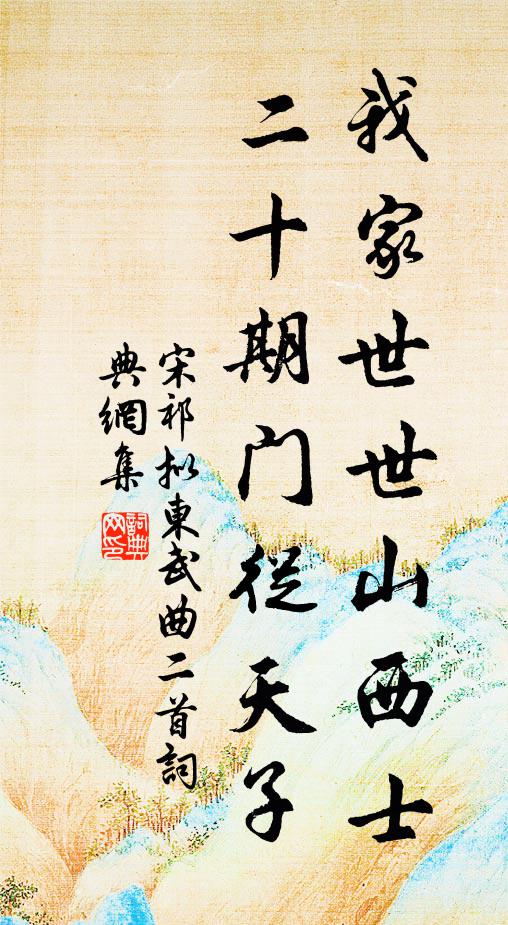 我家世世山西士
二十期门從天子
宋祁拟東武曲二首詞
典網集
詞典
网印